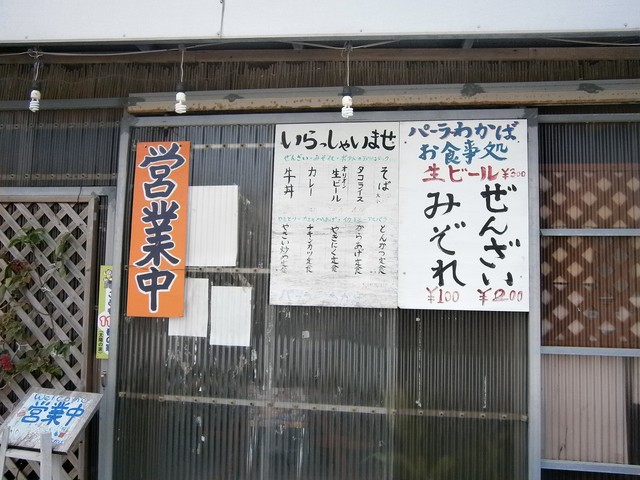 営業中
いらっしゃいませ
そば
タコライス
オリオン生ビール
カレー
牛丼
とんかつ定食
からあげ定食
やきにく定食
チキンカツ定食
やさい炒め定食
パーラーわかば
お食事処
生ビール ¥300
ぜんざい
みぞれ
¥100
営業中